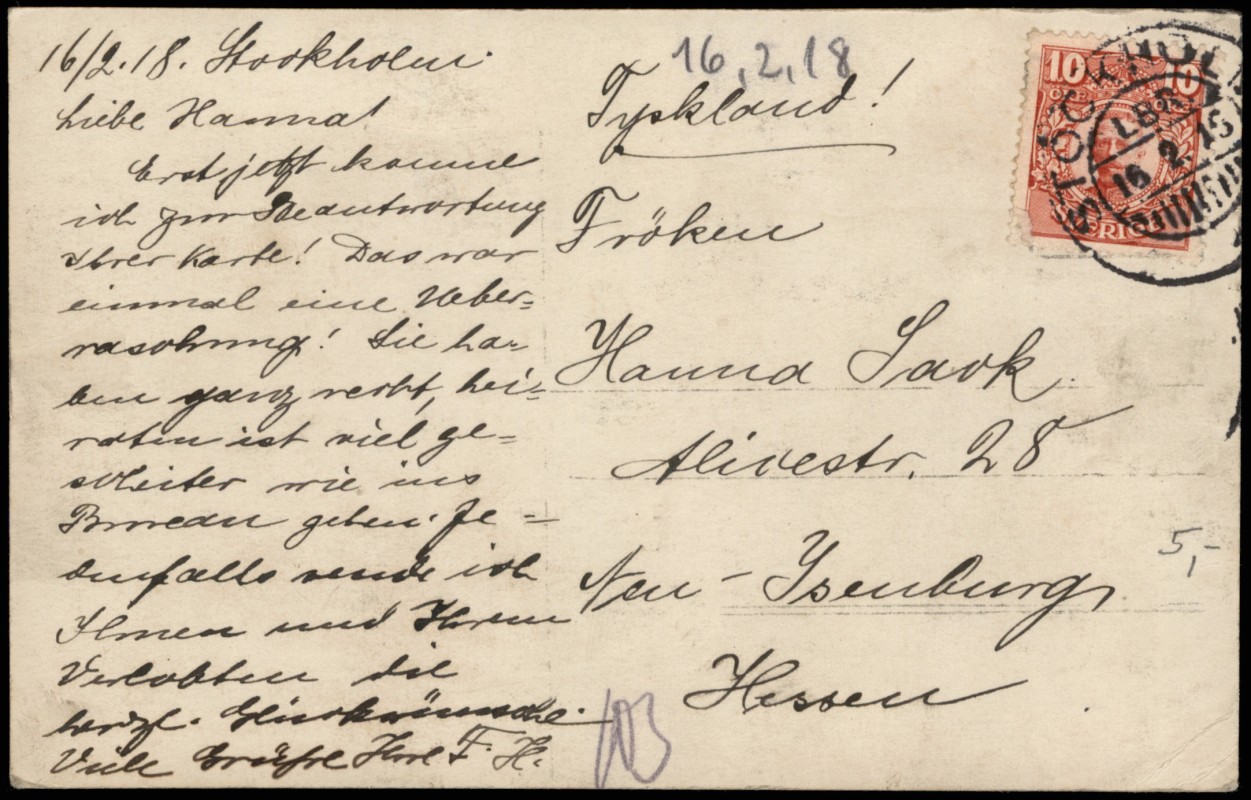 16/2.18. Stockholm.
Liebe Hanna!
Erst jetzt komme
ich zur Beantwortung
Ihrer Karte! Das war
einmal eine Ueber-
raschung! Sie ha-
ben ganz recht, hei-
raten ist viel ge-
scheiter wie ins
Bureau gehen. Je-
denfalls sende ich
Ihnen und Ihrem
Verlobten die
herzl. Glückwünsche.
Viele Grüße Ihre F. H.
16.2.18
Tyskland!
Fröken
Hanna Sack
Alicestr. 28
Neu-Isenburg
Hessen
5,-
10 10
ÖRE
STOCKHOLM
LBR
16 2 18